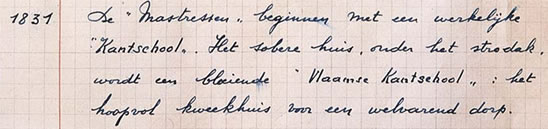 1831 De "Mastressen" beginnen met een werkelijke
"Kantschool". Het sobere huis, onder het strodak,
wordt een bloeiende "Vlaamse Kantschool" : het
hoopvol kweekhuis voor een welvarend dorp.